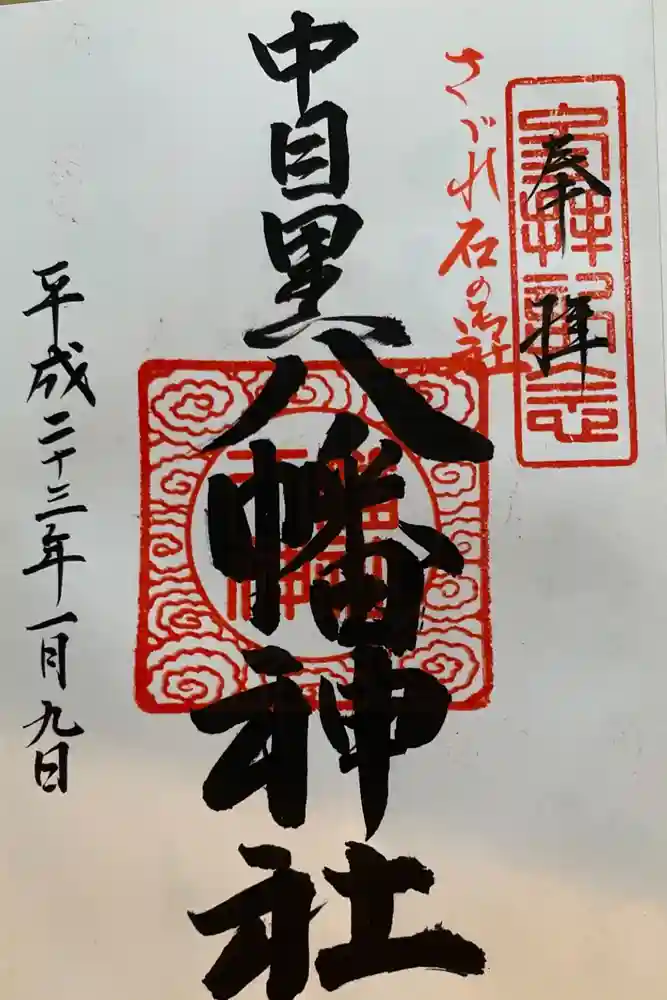 奉拝
さゞれ石の御社
中目黒八幡神社
平成二十三年一月九日